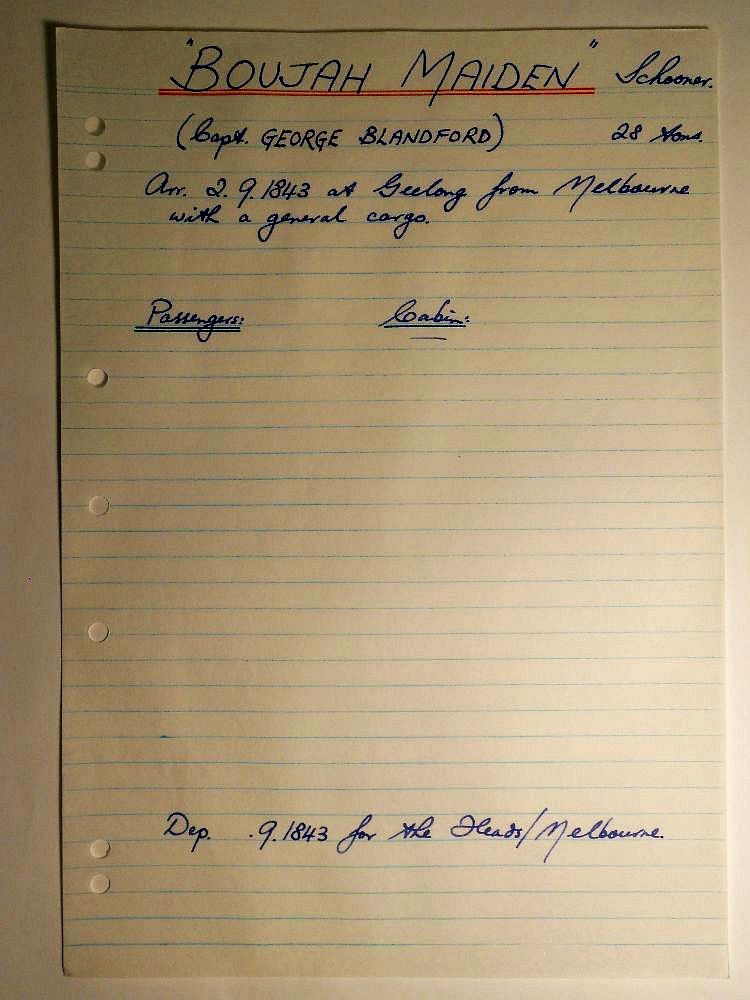 "BOUJAH MAIDEN" Schooner.
(Capt. GEORGE BLANDFORD) 28 tons.
Arr. 2.9.1843 at Geelong from Melbourne
with a general cargo.
Passengers: Cabin:
Dep. .9.1843 for the Heads/Melbourne.